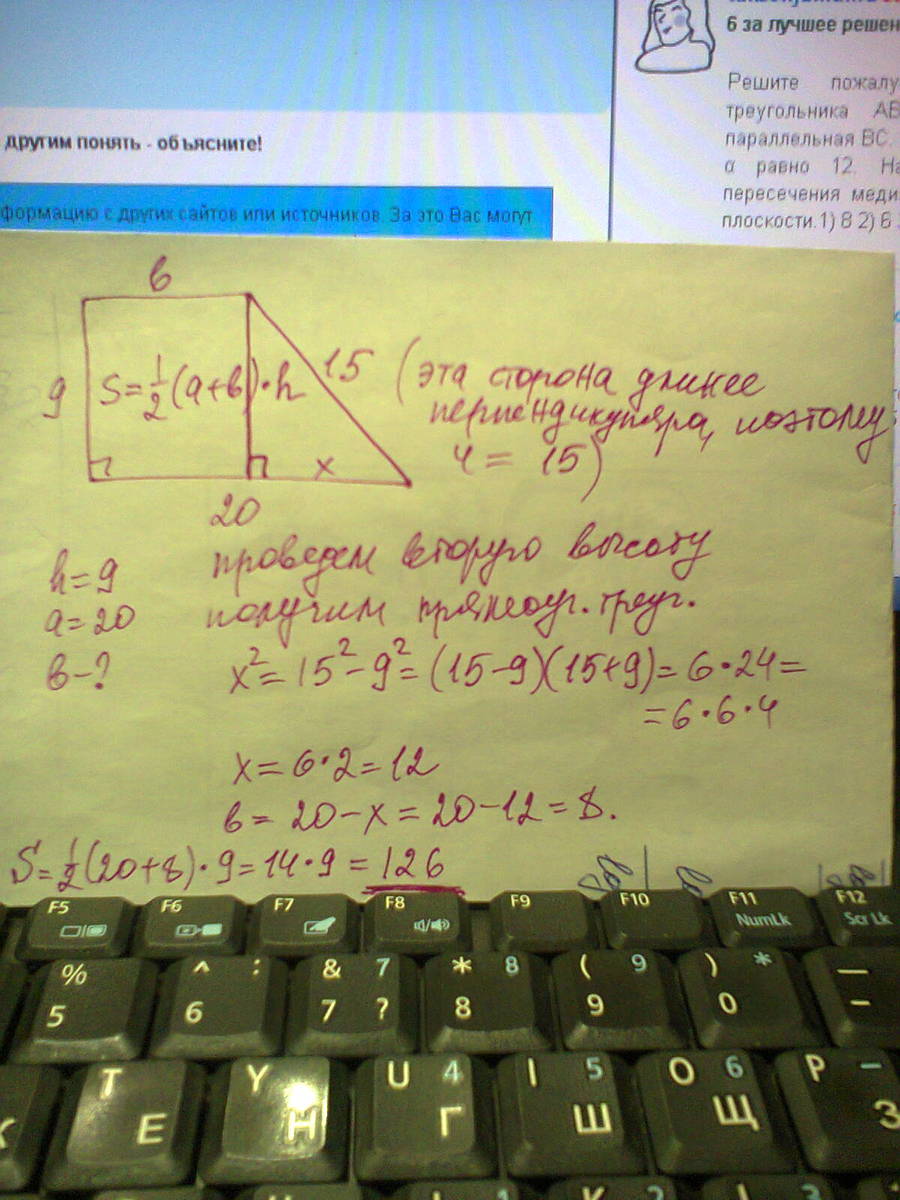 6 за лучшее решен
Решите пожалу
треугольника АВ
параллельная ВС.
α равно 12. На
пересечения меди
плоскости.1) 8 2) 6
другим понять - объясните!
формацию с других сайтов или источников. За это Вас могут
в
9
S=½(a+в)·h
15 (эта сторона длинее
перпендикуляра, поэтому
ч = 15)
x
20
h=9
a=20
в-?
проведем вторую высоту
получим прямоуг. треуг.
x²=15²-9²=(15-9)(15+9)=6·24=
=6·6·4
x=6·2=12
в=20-x=20-12=8.
S=½(20+8)·9=14·9=126
F5 F6 F7 F8 F9 F10 F11 F12
NumLk Scr Lk
% 5 ^ : 6 & 7 7 ? * 8 8 ( 9 9 ) * 0 — -
T Е Y Н U 4 Г I 5 Ш O 6 Щ P - З